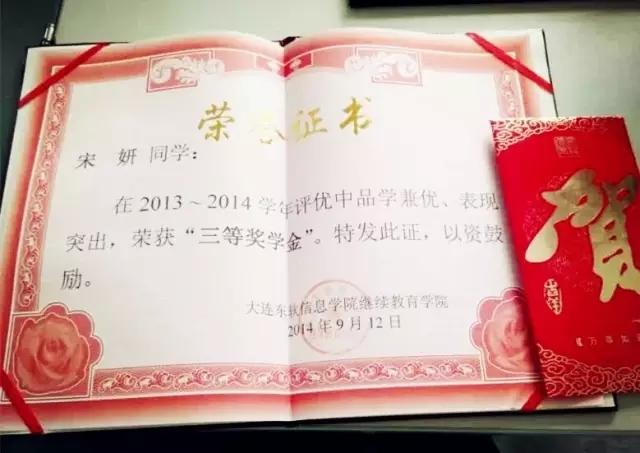 荣誉证书
宋 妍 同学：
在2013～2014学年评优中品学兼优、表现
突出，荣获“三等奖学金”。特发此证，以资鼓
励。
大连东软信息学院继续教育学院
2014年9月12日
贺
吉祥